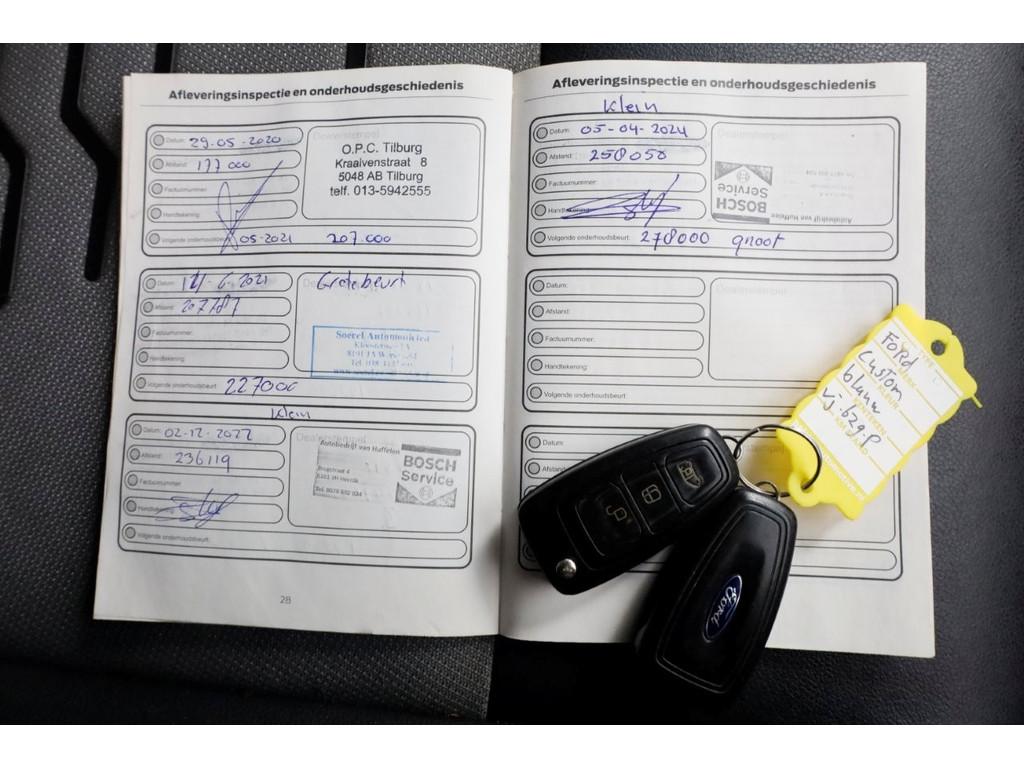 Afleveringsinspectie en onderhoudsgeschiedenis
Datum: 29-05-2020
Afstand: 177 000
Factuurnummer:
Handtekening:
Volgende onderhoudsbeurt: 05-2021 207.000
Dealerstempel
O.P.C. Tilburg
Kraaivenstraat 8
5048 AB Tilburg
telf. 013-5942555
Datum: 6-2021
Afstand:
Factuurnummer:
Handtekening:
Volgende onderhoudsbeurt: 227000
Grote beurt
Klein
Datum: 02-12-2022
Afstand: 236119
Factuurnummer:
Handtekening:
Volgende onderhoudsbeurt:
Dealerstempel
Autobedrijf van Huffelen
BOSCH
Service
28
Afleveringsinspectie en onderhoudsgeschiedenis
Klein
Datum: 05-04-2024
Afstand: 258058
Factuurnummer:
Handtekening:
Volgende onderhoudsbeurt: 278000 groot
Dealerstempel
Autobedrijf van Huffelen
BOSCH
Service
Datum:
Afstand:
Factuurnummer:
Handtekening:
Volgende onderhoudsbeurt:
Dealerstempel
Datum:
Afstand
Ford
FORD
Custom
blauw
KLEUR
KENTEKEN